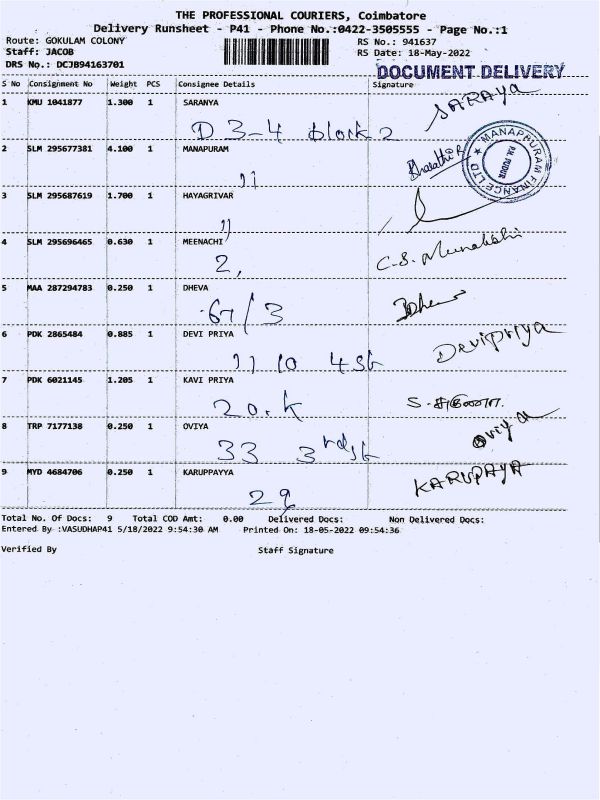 THE PROFESSIONAL COURIERS, Coimbatore
Delivery Runsheet - P41 - Phone No.:0422-3505555 - Page No.:1
Route: GOKULAM COLONY RS No.: 941637
Staff: JACOB RS Date: 18-May-2022
DRS No.: DCJB94163701 DOCUMENT DELIVERY
S No Consignment No Weight PCS Consignee Details Signature
1 KMU 1041877 1.300 1 SARANYA SARAYA
D 3-4 block 2
2 SLM 295677381 4.100 1 MANAPURAM Bharathi R MANAPPURAM FINANCE LTD P.N. PUDUR
11
3 SLM 295687619 1.700 1 HAYAGRIVAR
11
4 SLM 295696465 0.630 1 MEENACHI C.S. Meenakshi
2,
5 MAA 287294783 0.250 1 DHEVA Dheva
67/3
6 PDK 2865484 0.885 1 DEVI PRIYA Devipriya
11 10 4st
7 PDK 6021145 1.205 1 KAVI PRIYA
20.K
8 TRP 7177138 0.250 1 OVIYA oviya
33 3rd st
9 MYD 4684706 0.250 1 KARUPPAYYA KARUPAYA
29
Total No. Of Docs: 9 Total COD Amt: 0.00 Delivered Docs: Non Delivered Docs:
Entered By :VASUDHAP41 5/18/2022 9:54:30 AM Printed On: 18-05-2022 09:54:36
Verified By Staff Signature